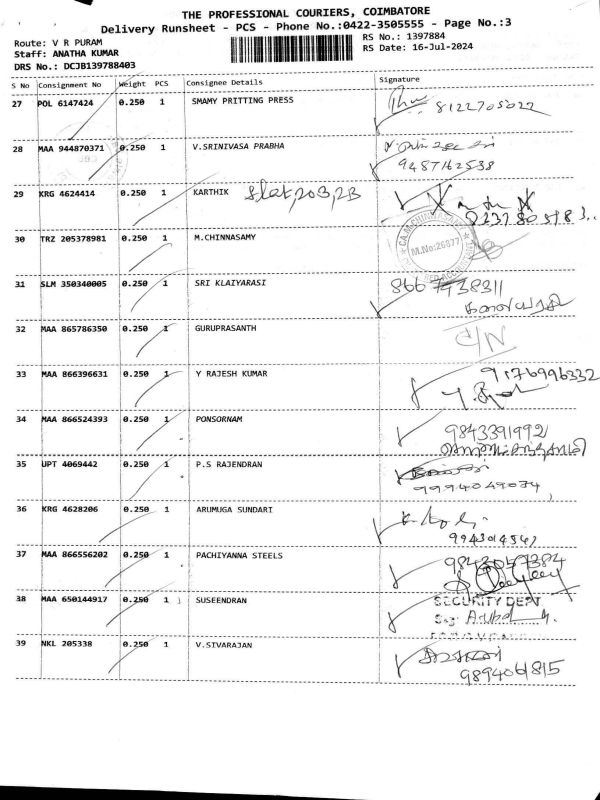 THE PROFESSIONAL COURIERS, COIMBATORE
Delivery Runsheet - PCS - Phone No.:0422-3505555 - Page No.:3
Route: V R PURAM
RS No.: 1397884
Staff: ANATHA KUMAR
RS Date: 16-Jul-2024
DRS No.: DCJB139788403
S No Consignment No Weight PCS Consignee Details Signature
27 POL 6147424 0.250 1 SMAMY PRITTING PRESS
8122705022
28 MAA 944870371 0.250 1 V.SRINIVASA PRABHA
9487162538
29 KRG 4624414 0.250 1 KARTHIK flat, 203, 2B
30 TRZ 205378981 0.250 1 M.CHINNASAMY
M.No:26877
31 SLM 350340005 0.250 1 SRI KLAIYARASI
8667438311
கலையரசி
32 MAA 865786350 0.250 1 GURUPRASANTH
33 MAA 866396631 0.250 1 Y RAJESH KUMAR
9176996332
34 MAA 866524393 0.250 1 PONSORNAM
9843391992
35 UPT 4069442 0.250 1 P.S RAJENDRAN
9994049034
36 KRG 4628206 0.250 1 ARUMUGA SUNDARI
37 MAA 866556202 0.250 1 PACHIYANNA STEELS
9843057384
38 MAA 650144917 0.250 1 SUSEENDRAN
SECURITY DEPT
39 NKL 205338 0.250 1 V.SIVARAJAN
9894061815